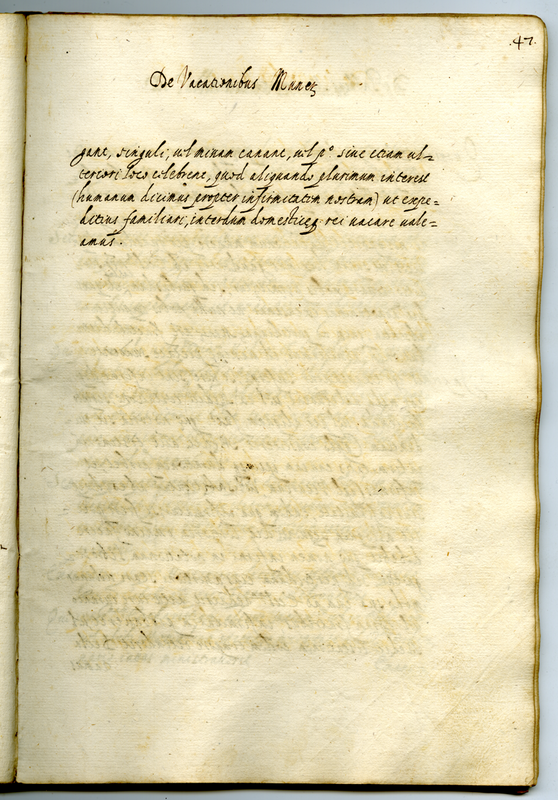 47.
De Vacationibus Muneꝝ
gant, singuli, vel missam canant, vel pº sive etiam ul=
teriori loco celebrent, quod aliquando plurimum interest
(humanum dicimus propter infirmitatem nostram) ut expe=
ditius familiari, interdum domesticęq; rei vacare vale=
amus.